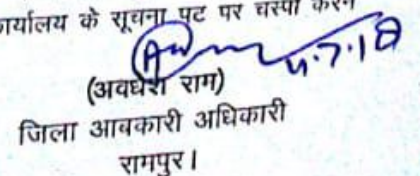 कार्यालय के सूचना पट पर चस्पा करने
4.7.18
(अवधेश राम)
जिला आबकारी अधिकारी
रामपुर।